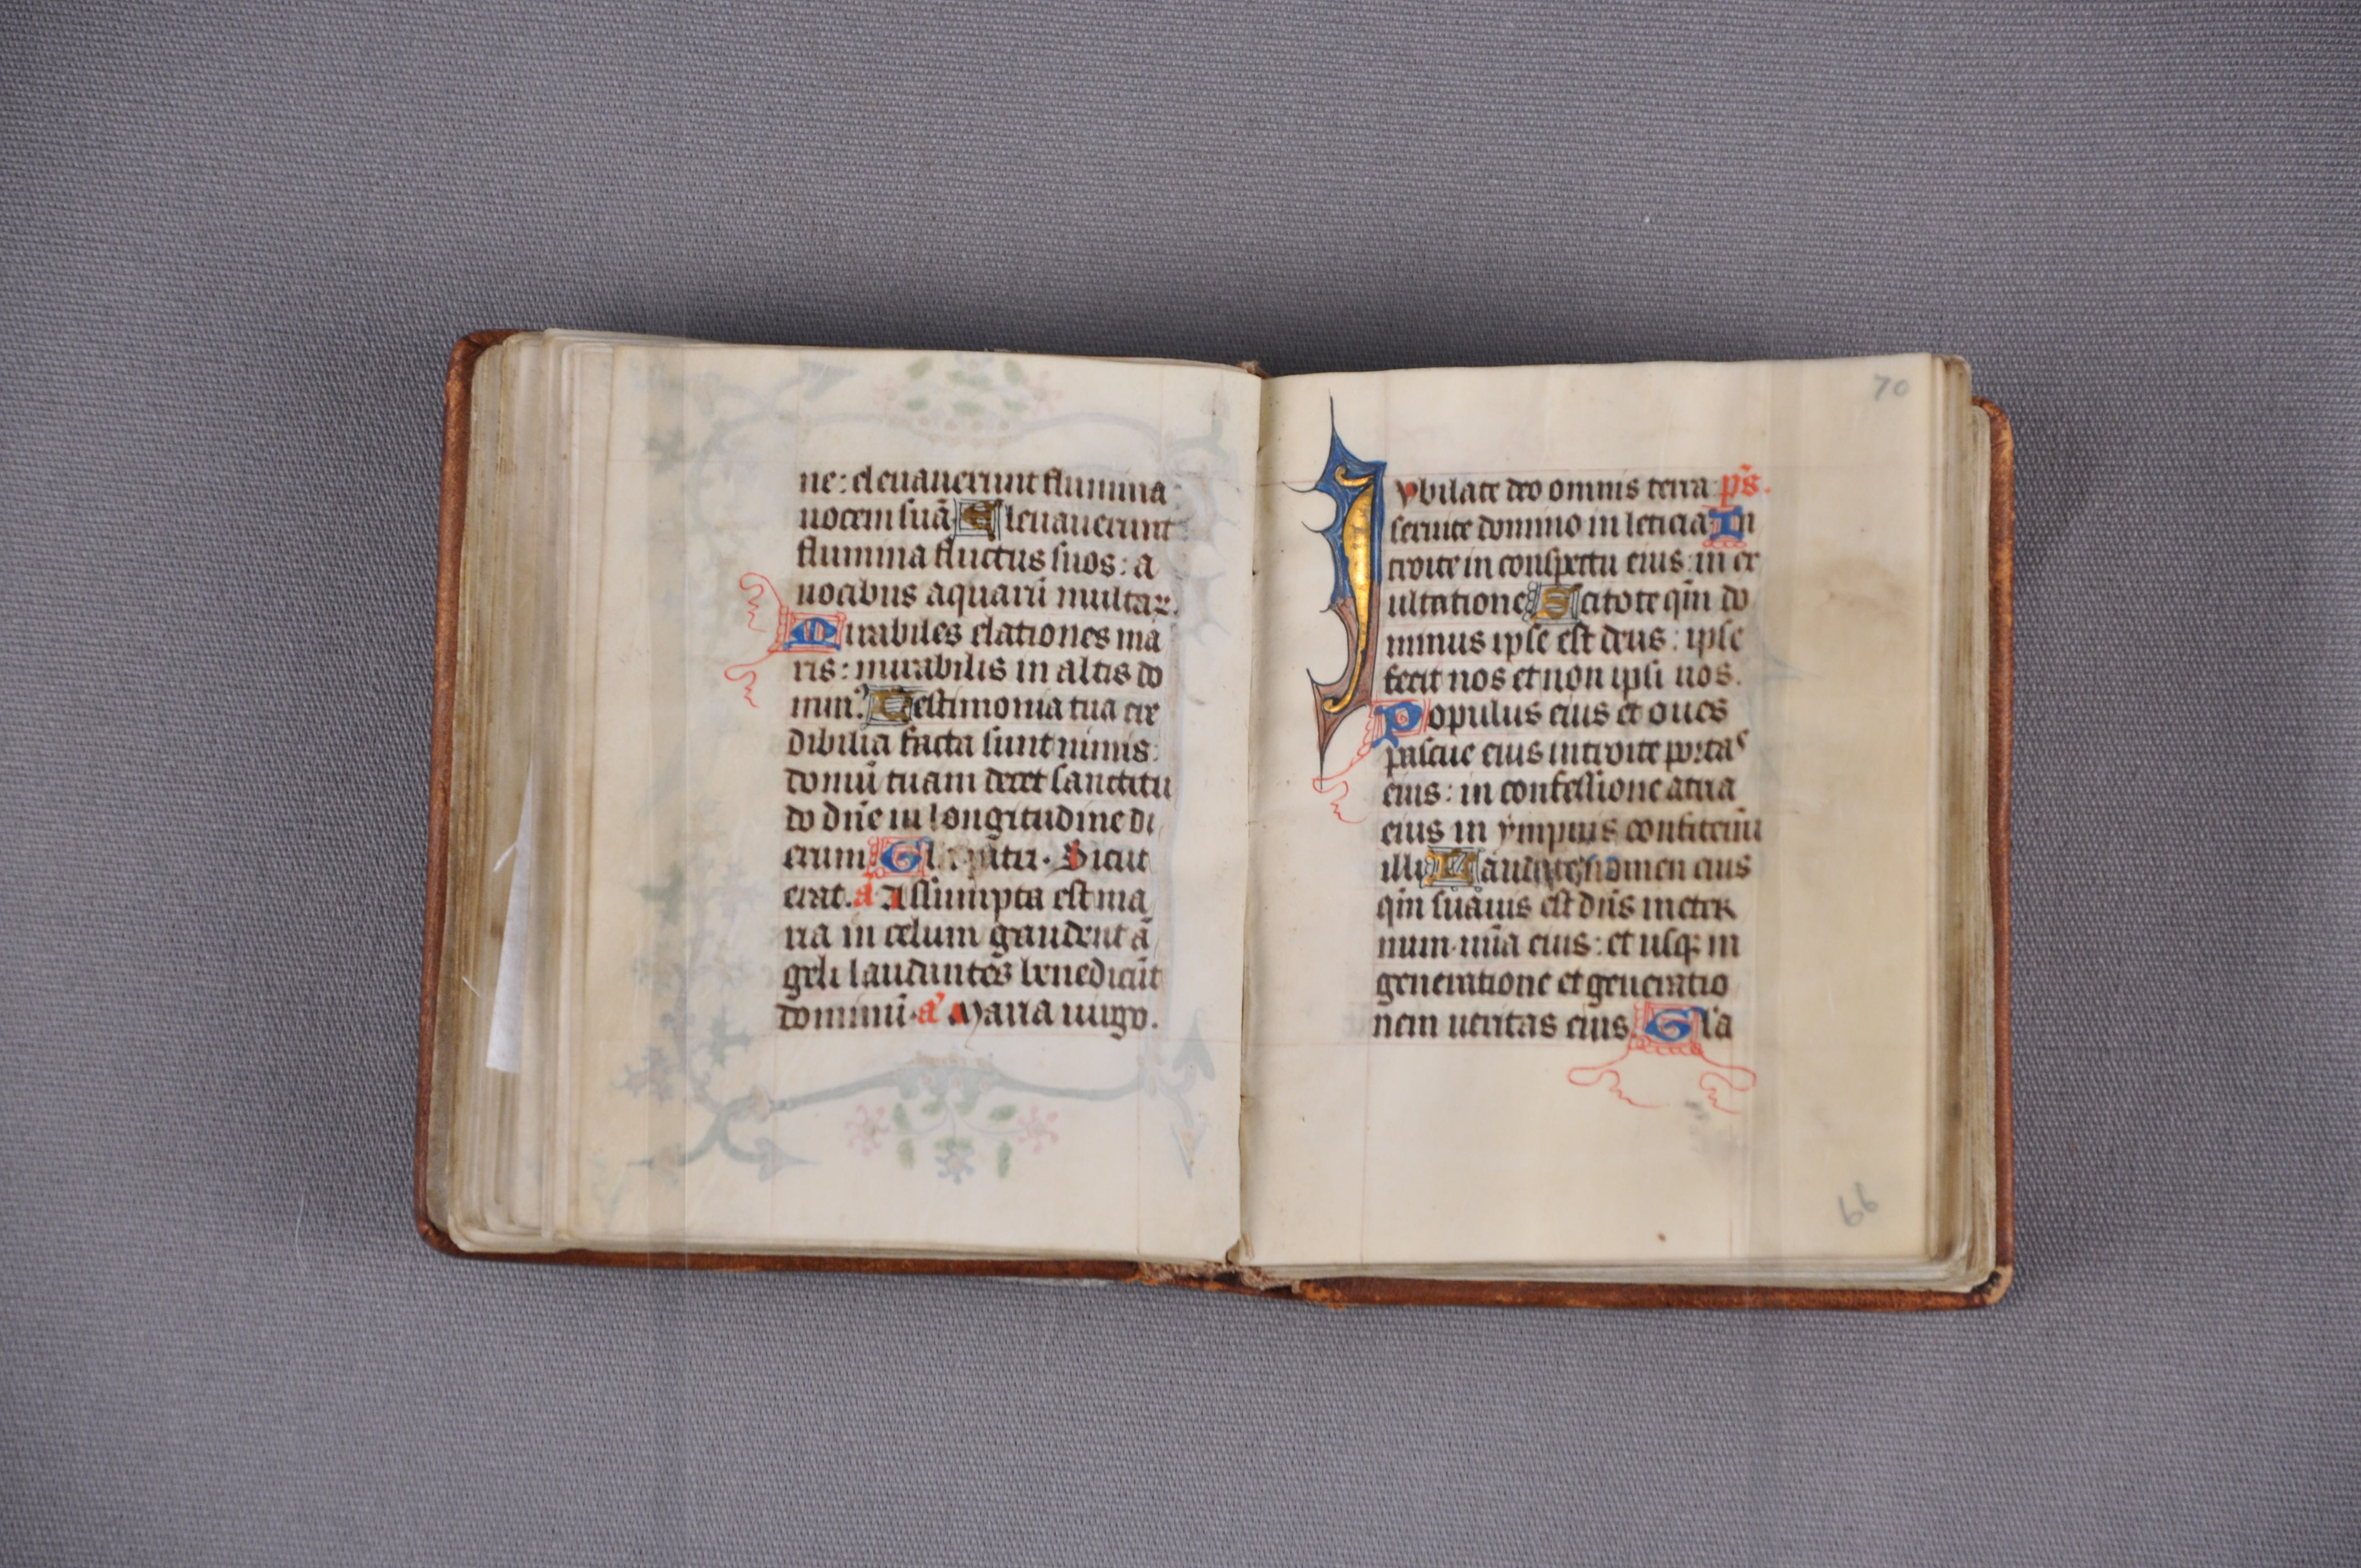 ne: eleuauerunt flumina
uocem suā Eleuauerunt
flumina fluctus suos: a
uocibus aquarū multaꝝ.
Mirabiles elationes ma
ris: mirabilis in altis do
min⁹. Testimonia tua cre
dibilia facta sunt nimis:
domū tuam decet sanctitu
do dn̄e in longitudine di
erum Gl'a patri. Sicut
erat. a᷑ Assumpta est ma
ria in celum gaudent ā
geli laudantes benedicūt
dominū. a᷑ Maria uirgo.
70
Iubilate deo omnis terra p̄s.
seruite domino in leticia In
troite in conspectu eius: in ex
ultatione Scitote qm̄ do
minus ipse est deus: ipse
fecit nos et non ipsi nos.
Populus eius et oues
pascue eius introite portas
eius: in confessione atria
eius in ympnis confitemī
illi Laudate nomen eius
qm̄ suauis est dn̄s in eter
num mīa eius: et usqꝫ in
generatione et generatio
nem ueritas eius Gl'a
66